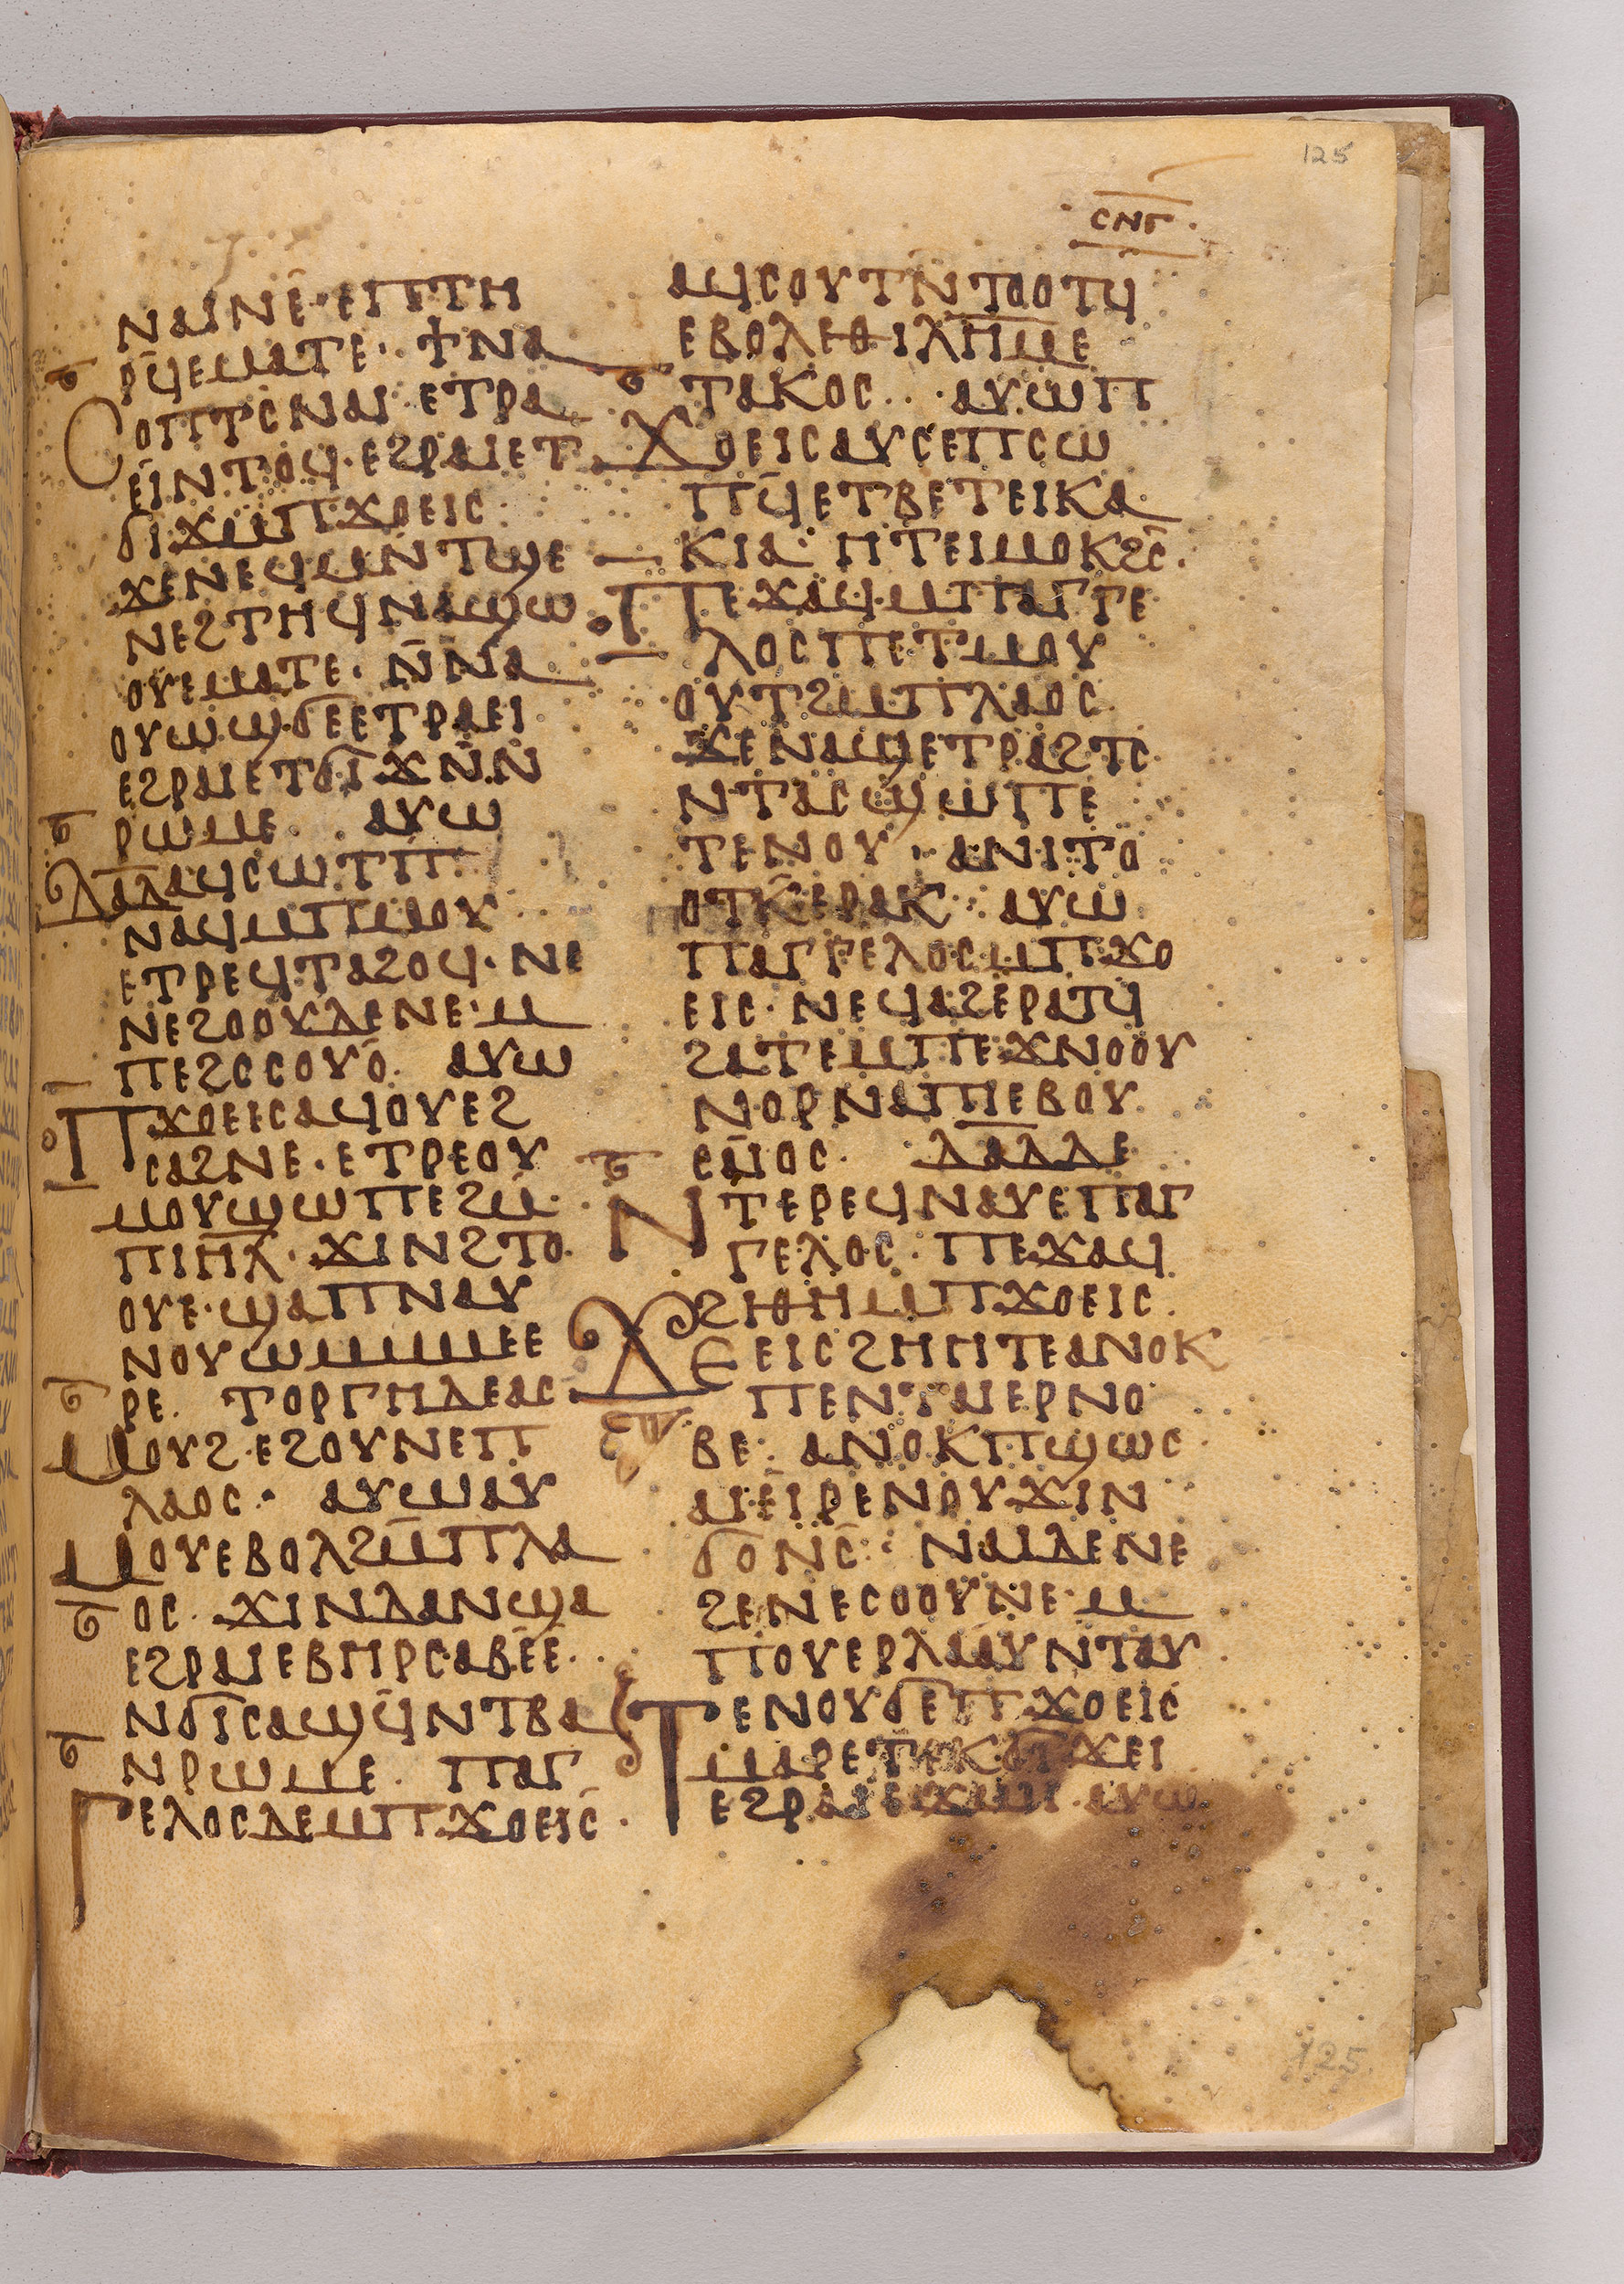 125
ⲥⲛⲅ
ⲛⲁⲓⲛⲉ· ⲉⲡⲧⲏ
ⲣϥⲉⲙⲁⲧⲉ· ϯⲛⲁ
ⲥⲟⲡⲧⲥⲛⲁⲓ· ⲉⲧⲣⲁ
ⲉⲓⲛⲧⲟϥ· ⲉϩⲣⲁⲓⲉⲧ
ϭⲓϫⲙⲡϫⲟⲉⲓⲥ
ϫⲉⲛⲉϥⲙⲛⲧϣⲉ
ⲛⲉϩⲧⲏϥⲛⲁϣⲱ
ⲟⲩⲉⲙⲁⲧⲉ· ⲛ̄ⲛⲁ
ⲟⲩⲱϣϭⲉⲉⲧⲣⲁⲉⲓ
ⲉϩⲣⲁⲓⲉⲧϭⲓϫⲛ̄ⲛ̄
ⲣⲱⲙⲉ· ⲁⲩⲱ
ⲇⲁ̄ⲇⲁϥⲥⲱⲧⲡ
ⲛⲁϥⲙⲡⲙⲟⲩ
ⲉⲧⲣⲉϥⲧⲁϩⲟϥ· ⲛⲉ
ⲛⲉϩⲟⲟⲩⲇⲉⲛⲉ· ⲙ
ⲡⲉϩⲥⲥⲟⲩⲟ· ⲁⲩⲱ
ⲡϫⲟⲉⲓⲥⲁϥⲟⲩⲉϩ
ⲥⲁϩⲛⲉ· ⲉⲧⲣⲉⲟⲩ
ⲙⲟⲩϣⲱⲡⲉϩⲙ̄
ⲡⲓⲏ̄ⲗ· ϫⲓⲛϩⲧⲟ
ⲟⲩⲉ· ϣⲁⲡⲛⲁⲩ
ⲛⲟⲩⲱⲙⲙⲙⲉⲉ
ⲣⲉ· ⲧⲟⲣⲅⲏⲇⲉⲁⲥ
ⲙⲟⲩϩ· ⲉϩⲟⲩⲛⲉⲡ
ⲗⲁⲟⲥ· ⲁⲩⲱⲁⲩ
ⲙⲟⲩⲉⲃⲟⲗϩⲙ̄ⲡⲗⲁ
ⲟⲥ· ϫⲓⲛⲇⲁⲛϣⲁ
ⲉϩⲣⲁⲓⲉⲃⲏⲣⲥⲁⲃⲉⲉ·
ⲛϭⲓⲥⲁϣϥ̄ⲛⲧⲃⲁ
ⲛⲣⲱⲙⲉ· ⲡⲁⲅ
ⲅⲉⲗⲟⲥⲇⲉⲙⲡϫⲟⲉⲓⲥ·
ⲁϥⲥⲟⲩⲧⲛ̄ⲧⲟⲟⲧϥ
ⲉⲃⲟⲗⲉⲑⲓⲗⲏ̄ⲙⲉ
ⲧⲁⲕⲟⲥ· ⲁⲩⲱⲡ
ϫⲟⲉⲓⲥⲁⲩⲥⲉⲡⲥⲱ
ⲡϥⲉⲧⲃⲉⲧⲉⲓⲕⲁ
ⲕⲓⲁ· ⲏⲧⲉⲓⲙⲟⲕϩⲥ̄·
ⲡⲉϫⲁϥⲙⲡⲁⲅⲅⲉ
ⲗⲟⲥⲡⲉⲧⲙⲟⲩ
ⲟⲩⲧϩⲙⲡⲗⲁⲟⲥ
ϫⲉⲛⲁϣⲉⲧⲣⲁϩⲧⲥ
ⲛⲧⲁⲥϣⲱⲡⲉ
ⲧⲉⲛⲟⲩ· ⲁⲛⲓⲧⲟ
ⲟⲧⲕ̄ⲉⲣⲁⲕ· ⲁⲩⲱ
ⲡⲁⲅⲅⲉⲗⲟⲥⲙⲡϫⲟ
ⲉⲓⲥ· ⲛⲉϥⲁϩⲉⲣⲁⲧϥ
ϩⲁⲧⲉⲙⲡⲉϫⲛⲟⲟⲩ
ⲛⲟⲣⲛⲁⲡⲓⲉⲃⲟⲩ
ⲥⲁⲓⲟⲥ· ⲇⲁ̄ⲇⲇⲉ
ⲛⲧⲉⲣⲉϥⲛⲁⲩⲉⲡⲁⲅ
ⲅⲉⲗⲟⲥ· ⲡⲉϫⲁϥ
ϩⲓⲑⲏⲙⲡϫⲟⲉⲓⲥ·
ϫⲉⲉⲓⲥϩⲏⲏⲧⲉⲁⲛⲟⲕ
ⲡⲉⲛⲧⲁⲓⲉⲣⲛⲟ
ⲃⲉ· ⲁⲛⲟⲕⲡϣⲱⲥ
ⲁⲓⲉⲓⲣⲉⲛⲟⲩϫⲓⲛ
ϭⲟⲛⲥ̄· ⲛⲁⲓⲇⲉⲛⲉ
ϩⲉⲛⲉⲥⲟⲟⲩⲛⲉ· ⲙ
ⲡⲟⲩⲉⲣⲗⲁⲁⲩⲛⲧⲁⲩ
ⲧⲉⲛⲟⲩϭⲉⲡϫⲟⲉⲓⲥ
ⲙⲁⲣⲉⲧⲉⲕϭⲓϫⲉⲓ
ⲉϩⲣⲁⲓⲉϫⲱⲓ· ⲁⲩⲱ
125